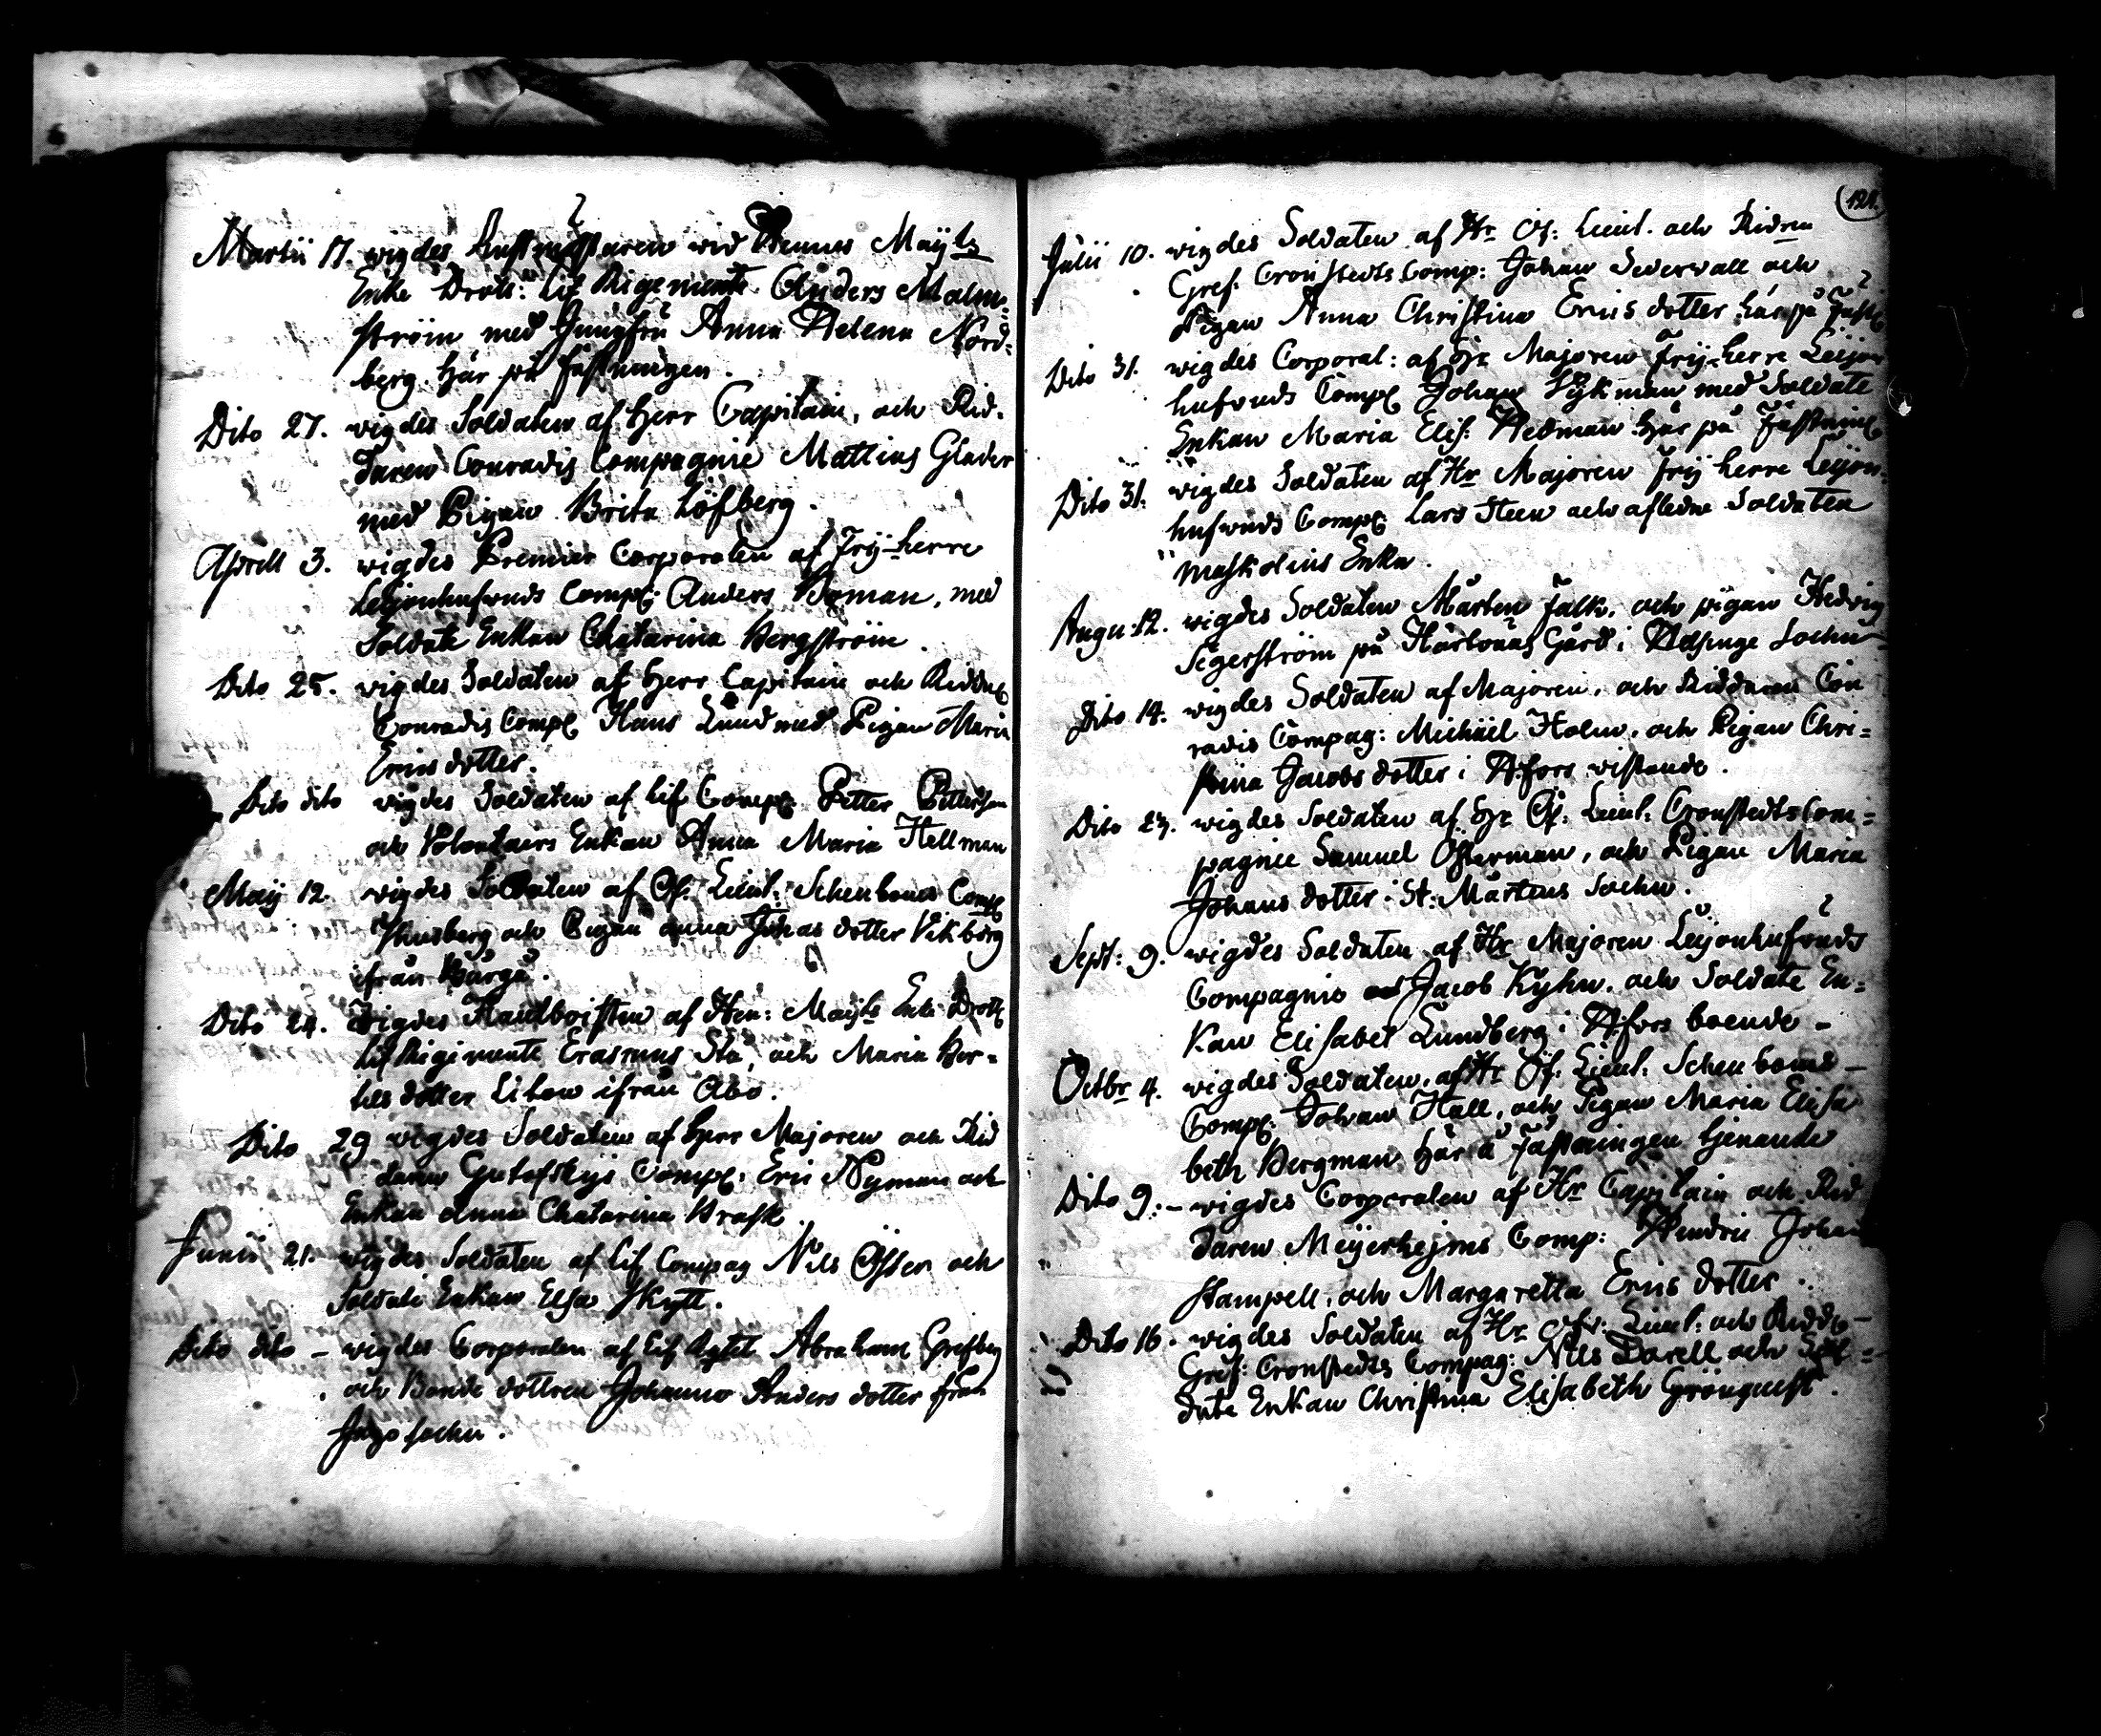 Martii 17. wigdes Rustmästaren wid Hennes Maij:ts
Enke Drott: Lif Regemente Anders Malm-
ström med Jungfru Anna Helena Nord-
berg här på Fästningen.
Dito 27. wigdes Soldaten af Herr Capitain, och Rid-
daren Conradis Compagnie Mattias Glader
med Pigan Brita Löfberg.
Aprell 3. wigdes Premier Corporalen af Frij-herre
Leijonhufwuds Comp: Anders Boman, med
Soldate Enkan Chatarina Bergström.
Dito 25. wigdes Soldaten af Herr Capitain och Ridd:
Conradis Comp: Hans Lund med Pigan Maria
Erics dotter.
Dito dito wigdes Soldaten af Lif Comp: Petter Pettersson
och Volontairs Enkan Anna Maria Hellman
Maij 12. wigdes Soldaten af Öf: Lieut: Schenboms Comp:
och Pigan Anna Johas dotter Vikborg
ifrån Bårgå.
Dito 24. wigdes Hautboisten af Hen: Maij:ts Enke Drott:
Lif Regimente Erasmus Sta, och Maria Ber-
tils dotter Litow ifrån Åbo.
Dito 29 wigdes Soldaten af Herr Majoren och Rid
daren Gutofskijs Comp: Eric Nyman och
Enkan Anna Chatarina Brask
Junii 21. wigdes Soldaten af Lif Compag Nils Öster och
Soldate Enkan Elsa Skytt.
Dito dito - wigdes Corporalen af Lif Rgtet Abraham Grefberg
och Bonde dottren Johanna Anders dotter från
sochn.
121.
Julii 10. wigdes Soldaten af Hr Öf: Lieut. och Ridren
Gref. Cronstedts Comp: Johan Sederwall och
Pigan Anna Christina Erics dotter här på Fästn:
Dito 31. wigdes Corporal: af Hr Majoren Frij-herre Leijon
hufwuds Comp: Johan Wijkman med Soldate
Enkan Maria Elis: Hedman här på Fästning:
Dito 31. wigdes Soldaten af Hr Majoren Frij herre Leijon-
hufwuds Comp: Lars Steen och afledne Soldaten
Maskolins Enka.
Augu 12. wigdes Soldaten Mårten Falk, och pigan Hedvig
Segerström på Härtonäs Gård i Helsinge Sochn
Dito 14. wigdes Soldaten af Majoren, och Riddaren Con
radis Compag: Michäel Holm, och Pigan Chri=
stina Jacobs dotter i H:fors wistande.
Dito 23. wigdes Soldaten af Hr Öf: Lieut: Cronstedts Com=
pagnie Samuel Österman, och Pigan Maria
Johans dotter i St: Mårtens Sochn.
Sept: 9. wigdes Soldaten af Hr Majoren Leijonhufwuds
Compagnie Jacob Kyhn, och Soldate En=
kan Elisabet Lundberg i H:fors boende -
Octbr 4. wigdes Soldaten, af Hr Öf. Lieut. Schenboms -
Comp: Johan Hall, och Pigan Maria Elisa
beth Bergman här å Fästningen tjenande
Dito 9. - wigdes Corporalen af Hr Capitain och Rid
daren Meijerhejms Comp: Hendric Johan
Stampell, och Margaretta Erics dotter.
Dito 16. wigdes Soldaten af Hr Öfr: Lieut: och Ridd: -
Gref: Cronstedts Compag: Nils Dorell och Sol=
date Enkan Christina Elisabeth Grönquist.